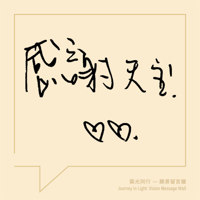 感謝天主!
聚光同行 — 願景留言牆
Journey in Light: Vision Message Wall